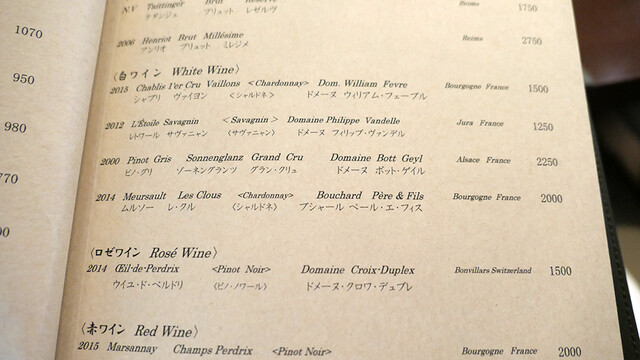 1070
950
980
770
N.V Taittinger Brut Reserve Reims 1750
ブリュット レゼルヴ
2006 Henriot Brut Millésime Reims 2750
アンリオ ブリュット ミレジメ
〈白ワイン White Wine〉
2015 Chablis 1'er Cru Vaillons <Chardonnay> Dom. William Fevre Bourgogne France 1500
シャブリ ヴァイヨン 〈シャルドネ〉 ドメーヌ ウィリアム・フェーブル
2012 L'Étoile Savagnin <Savagnin> Domaine Philippe Vandelle Jura France 1250
レトワール サヴァニャン 〈サヴァニャン〉 ドメーヌ フィリップ・ヴァンデル
2000 Pinot Gris Sonnenglanz Grand Cru Domaine Bott Geyl Alsace France 2250
ピノ・グリ ゾーネングランツ グラン・クリュ ドメーヌ ボット・ゲイル
2014 Meursault Les Clous <Chardonnay> Bouchard Père & Fils Bourgogne France 2000
ムルソー レ・クル 〈シャルドネ〉 ブシャール ペール・エ・フィス
〈ロゼワイン Rosé Wine〉
2014 Œil-de-Perdrix <Pinot Noir> Domaine Croix-Duplex Bonvillars Switzerland 1500
ウイユ・ド・ペルドリ 〈ピノ・ノワール〉 ドメーヌ・クロワ・デュプレ
〈赤ワイン Red Wine〉
2015 Marsannay Champs Perdrix <Pinot Noir> Bourgogne France 2000